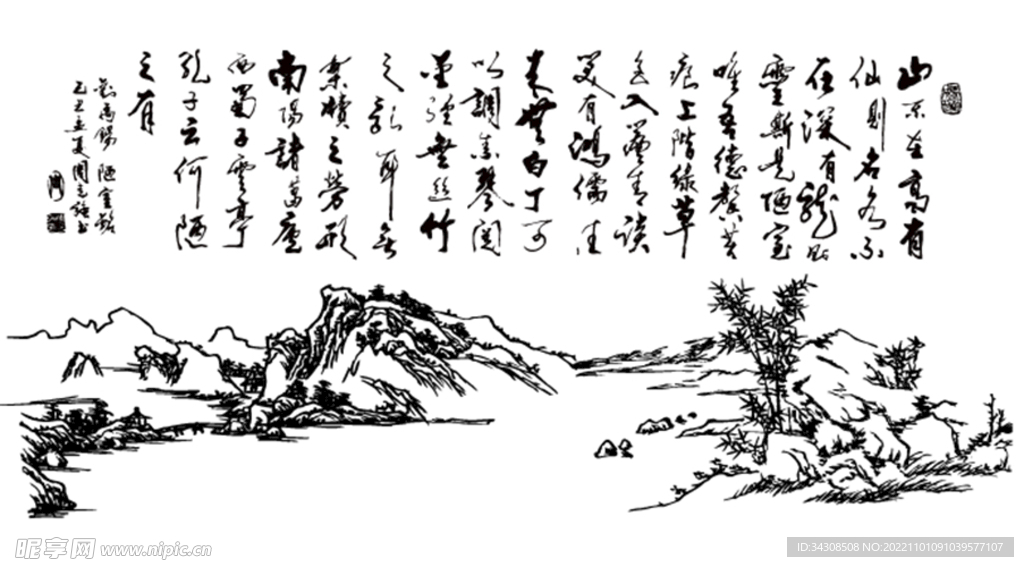 山不在高有
仙則名水不
在深有龍則
靈斯是陋室
唯吾德馨苔
痕上階綠草
色入簾青談
笑有鴻儒往
来無白丁可
以調素琴閱
金經無絲竹
之亂耳無
案牘之勞形
南陽諸葛廬
西蜀子雲亭
孔子云何陋
之有
劉禹錫 陋室銘
昵享网 www.nipic.cn
ID:34308508 NO:20221101091039577107